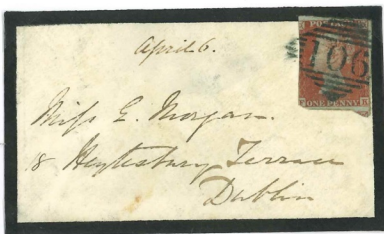 April 6.
POSTAGE
106
ONE PENNY
Miss E. Morgan.
18 Heytesbury Terrace
Dublin